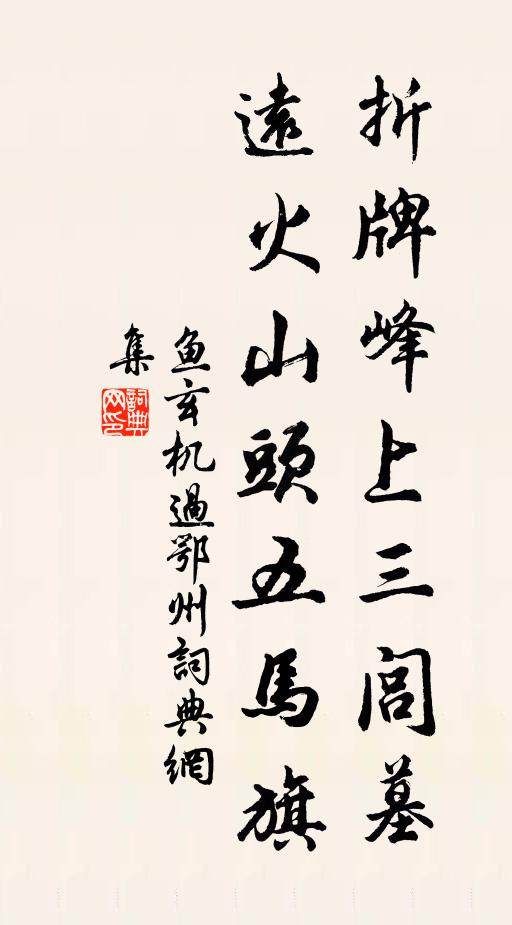 折牌峰上三閭墓
遠火山頭五馬旗
鱼玄机過鄂州詞典網
集
詞典
网印